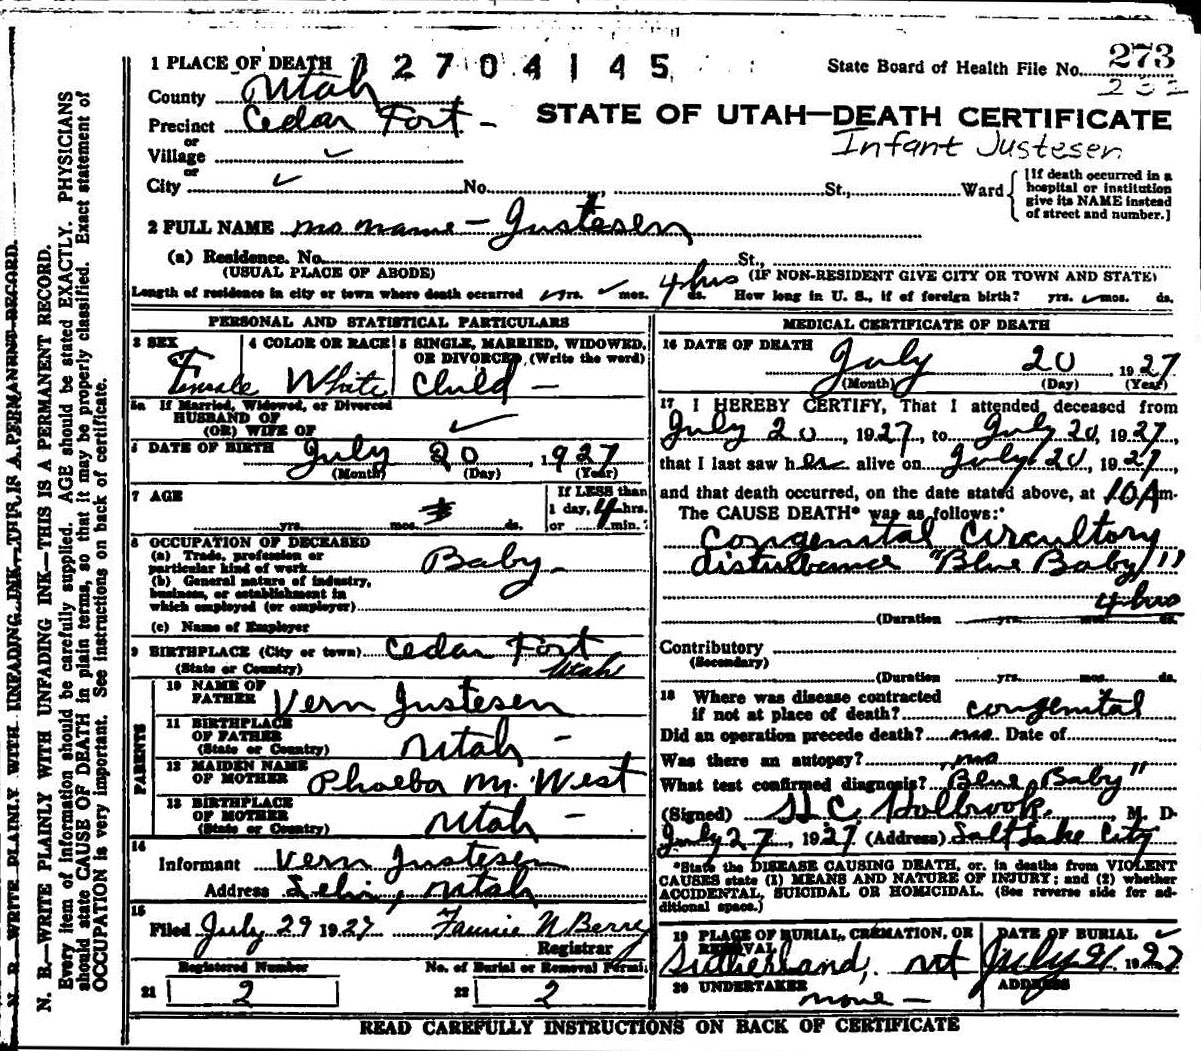 1 PLACE OF DEATH 12704145
State Board of Health File No. 273
232
County Utah
Precinct Cedar Fort -
or
Village ✓
or
City ✓ No. , St., Ward
[If death occurred in a
hospital or institution
give its NAME instead
of street and number.]
STATE OF UTAH—DEATH CERTIFICATE
Infant Justesen
2 FULL NAME no name - Justesen
(a) Residence. No. St.,
(USUAL PLACE OF ABODE) (IF NON-RESIDENT GIVE CITY OR TOWN AND STATE)
Length of residence in city or town where death occurred ✓ yrs. ✓ mos. 4 hrs ds. How long in U. S., if of foreign birth? yrs. ✓ mos. ds.
PERSONAL AND STATISTICAL PARTICULARS
3 SEX 4 COLOR OR RACE 5 SINGLE, MARRIED, WIDOWED,
OR DIVORCED, (Write the word)
Female White Child -
5a If Married, Widowed, or Divorced
HUSBAND OF
(OR) WIFE OF ✓
6 DATE OF BIRTH July 20, 1927
(Month) (Day) (Year)
7 AGE yrs. mos. ds.
If LESS than
1 day, 4 hrs.
or min.?
8 OCCUPATION OF DECEASED
(a) Trade, profession or
particular kind of work Baby -
(b) General nature of industry,
business, or establishment in
which employed (or employer)
(c) Name of Employer
9 BIRTHPLACE (City or town) Cedar Fort
(State or Country) Utah
PARENTS
10 NAME OF
FATHER Vern Justesen
11 BIRTHPLACE
OF FATHER
(State or Country) Utah -
12 MAIDEN NAME
OF MOTHER Phoeba M. West
13 BIRTHPLACE
OF MOTHER
(State or Country) Utah -
14
Informant Vern Justesen
Address Lehi, Utah
15
Filed July 29 1927 Fannie N. Berry
Registrar
Registered Number No. of Burial or Removal Permit
21 2 22 2
MEDICAL CERTIFICATE OF DEATH
16 DATE OF DEATH
July 20 1927
(Month) (Day) (Year)
17 I HEREBY CERTIFY, That I attended deceased from
July 20, 1927, to July 20, 1927,
that I last saw her alive on July 20, 1927,
and that death occurred, on the date stated above, at 10 A m.
The CAUSE DEATH* was as follows:*
Congenital Circultory
disturbance "Blue Baby"
4 hrs
(Duration yrs. mos. ds.
Contributory
(Secondary)
(Duration yrs. mos. ds.
18 Where was disease contracted
if not at place of death? congenital
Did an operation precede death? no Date of
Was there an autopsy? no
What test confirmed diagnosis? Blue Baby"
(Signed) H C Holbrook, M. D.
July 27, 1927 (Address) Salt Lake City
*State the DISEASE CAUSING DEATH, or, in deaths from VIOLENT
CAUSES state (1) MEANS AND NATURE OF INJURY; and (2) whether
ACCIDENTAL, SUICIDAL OR HOMICIDAL. (See reverse side for ad-
ditional space.)
19 PLACE OF BURIAL, CREMATION, OR
REMOVAL
Sutherland, Ut
DATE OF BURIAL ✓
July 21 1927
20 UNDERTAKER
none -
ADDRESS
READ CAREFULLY INSTRUCTIONS ON BACK OF CERTIFICATE
N. B.—WRITE PLAINLY WITH UNFADING INK—THIS IS A PERMANENT RECORD.
N. B.—WRITE PLAINLY WITH UNFADING INK—THIS IS A PERMANENT RECORD.
Every item of information should be carefully supplied. AGE should be stated EXACTLY. PHYSICIANS
should state CAUSE OF DEATH in plain terms, so that it may be properly classified. Exact statement of
OCCUPATION is very important. See instructions on back of certificate.